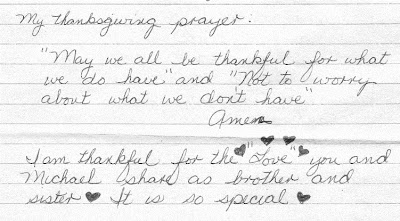 My thanksgiving prayer:
"May we all be thankful for what
we do have" and "Not to worry
about what we don't have"
Amen
I am thankful for the "Love" you and
Michael share as brother and
sister ♥ It is so special ♥